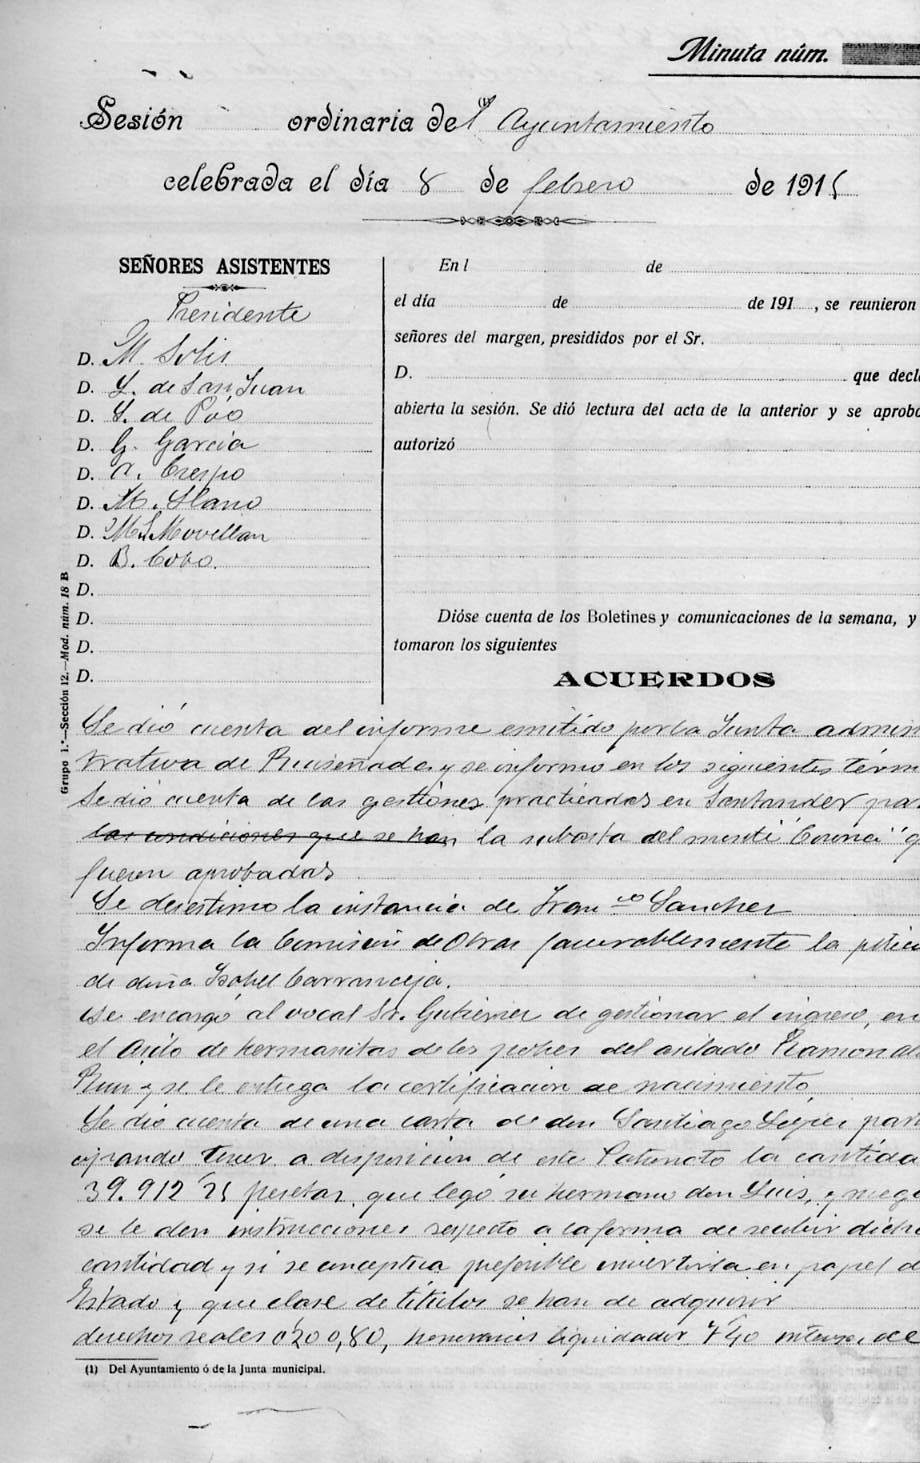 Minuta núm.
Sesión ordinaria de (1) l Ayuntamiento
celebrada el día 8 de febrero de 1915
SEÑORES ASISTENTES
Presidente
D. M. Solis
D. Y. de San Juan
D. S. de Poo
D. G. Garcia
D. A. Crespo
D. M. Llano
D. M. S. Movellan
D. B. Cobo.
D.
D.
D.
D.
En l de
el día de de 191 , se reunieron
señores del margen, presididos por el Sr.
D. que decl
abierta la sesión. Se dió lectura del acta de la anterior y se aprobó
autorizó
Dióse cuenta de los Boletines y comunicaciones de la semana, y
tomaron los siguientes
ACUERDOS
Se dió cuenta del informe emitido por la Junta admin
trativa de Ruiseñada y se informo en los siguientes térm
Se dió cuenta de las gestiones practicadas en Santander pa
las condiciones que se han la subasta del monte
fueron aprobadas
Se desestimo la instancia de Fran co Sanchez
Informa la Comisión de Obras favorablemente la petici
de doña Isabel Carranceja.
Se encargó al vocal Sr. Gutierrez de gestionar el ingreso, en
el Asilo de hermanitas de los pobres del asilado Ramon
y se le entrega la certificacion de nacimiento
Se dió cuenta de una carta de don Santiago par
cipando tener a disposicion de este Patronato la cantida
39.912 25 pesetas que legó su hermano don Luis, y ruega
se le den instrucciones respecto a la forma de recibir dicha
cantidad y si se conceptua preferible invertirla en papel d
Estado y que clase de títulos se han de adquirir
derechos reales 0,80, honorarios liquidador
(1) Del Ayuntamiento ó de la Junta municipal.
Grupo 1.º—Sección 12.—Mod. núm. 18 B